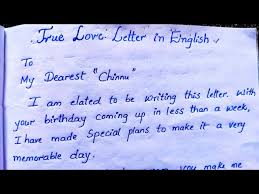 True Love Letter in English
To
My Dearest "Chinnu"
I am elated to be writing this letter. With
your birthday coming up in less than a week,
I have made Special plans to make it a very
memorable day.
you make me